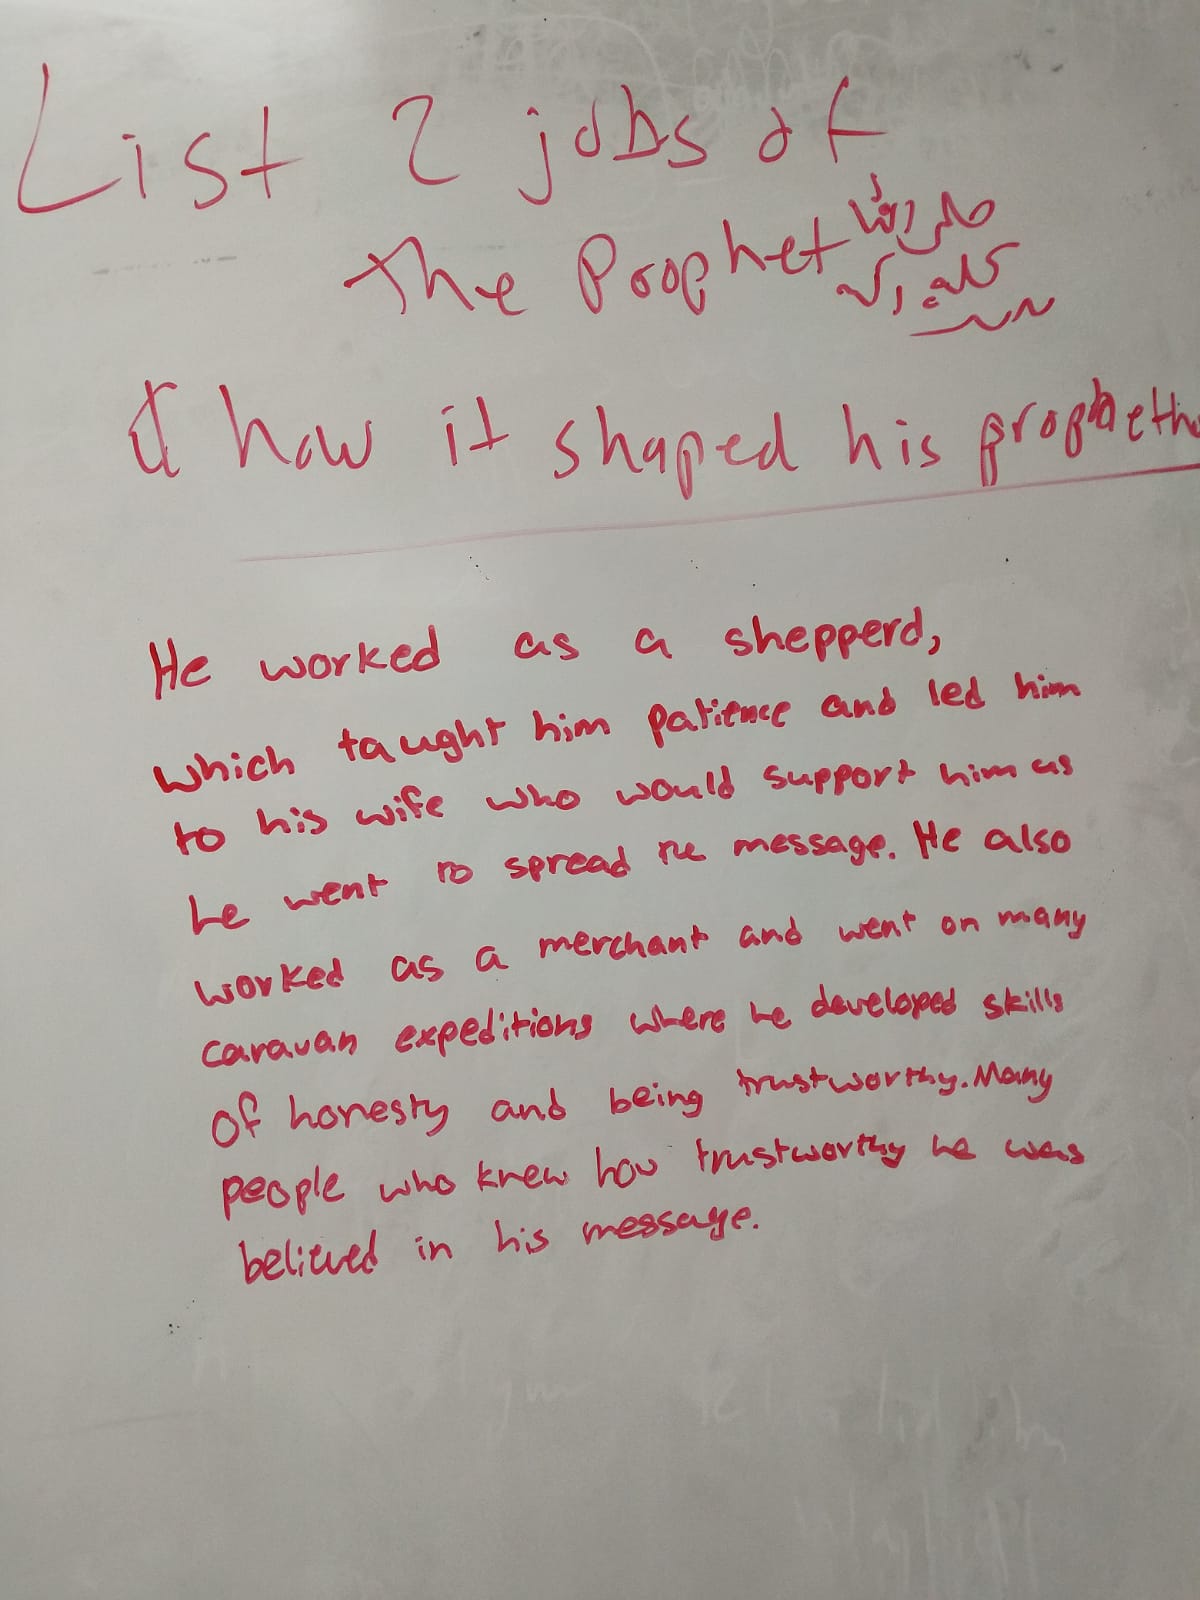 List 2 jobs of
the Prophet صلى الله
عليه وآله
& how it shaped his propheth
He worked as a shepperd,
which taught him patience and led him
to his wife who would support him as
he went to spread the message. He also
worked as a merchant and went on many
caravan expeditions where he developed skills
of honesty and being trustworthy. Many
people who knew how trustworthy he was
believed in his message.